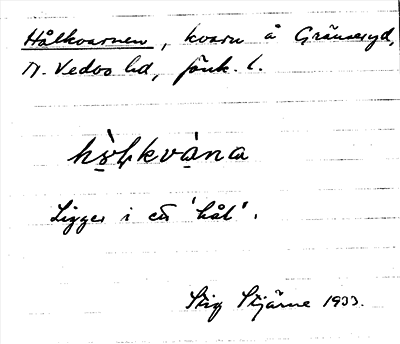 Hålkvarnen, kvarn å Gränseryd,
N. Vedbo hd, Jönk. l.
hò̱ɫkvà̱na
Ligger i ett 'hål'.
Stig Stjärne 1933.